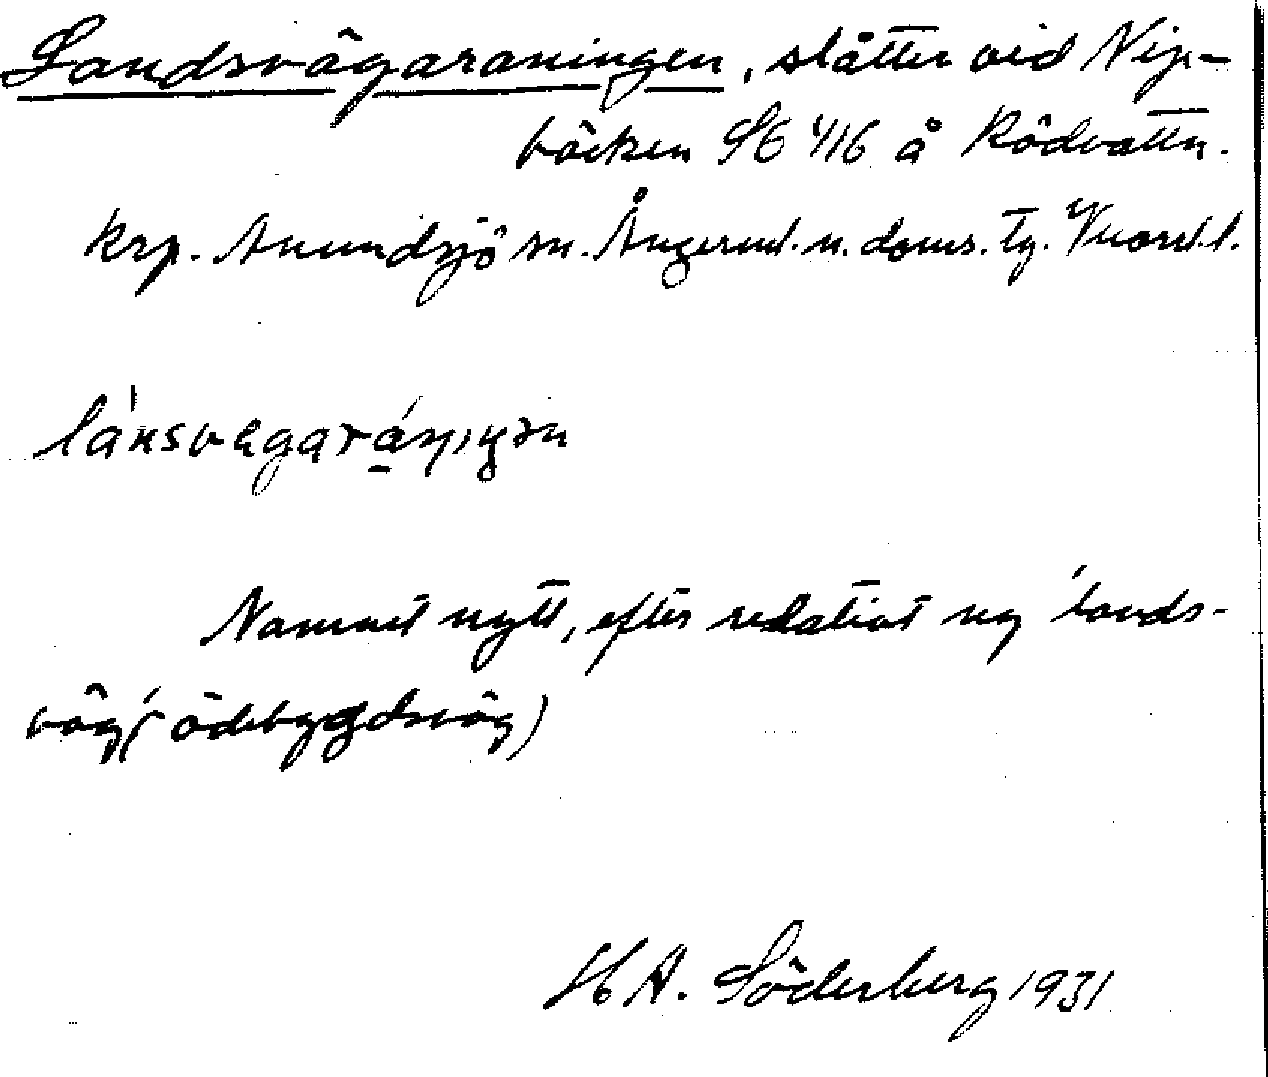 Landsvägaraningen, slåtter vid Nip-
bäcken St 416 å Rödvattn.
krp. Anundsjö sn. Ångerml. n. doms. tg. Vnorrl. l.
lánsvegarániŋən
Namnet nytt, efter relativt ny 'lands-
väg' (ödebygdsväg)
H A. Söderberg 1931